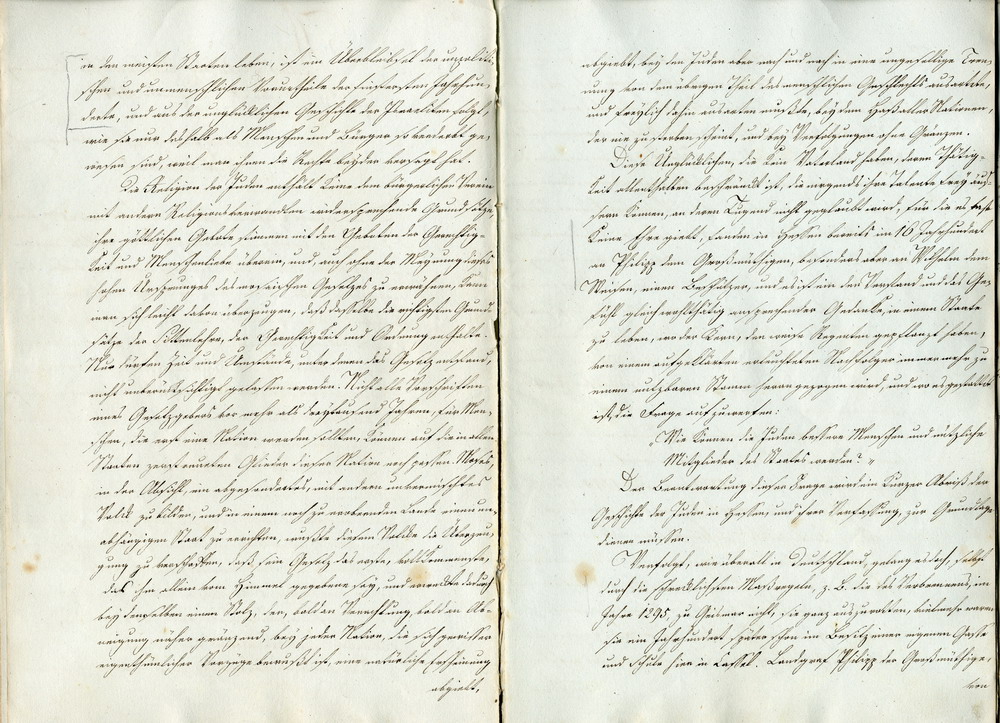 in den meisten Staaten leben, ist ein Überbleibsel der unpoliti-
schen und unmenschlichen Vorurtheile der finstersten Jahrhun-
derte, und aus der unglücklichen Geschichte der Israeliten folgt,
wie sie nur deshalb als Menschen und Bürger so verderbt ge-
wesen sind, weil man ihnen die Rechte beyder versagt hat.
Die Religion der Juden enthält keine dem bürgerlichen Verein
mit andern Religionsverwandten widersprechende Grundsätze
ihre göttlichen Gebote stimmen mit den Geboten der Gerechtig-
keit und Menschenliebe überein, und, auch ohne der Meynung dieses
hohen Ursprunges des mosaischen Gesetzes zu erwähnen, kann
man sich leicht davon überzeugen, daß dasselbe die richtigsten Grund-
sätze der Sittenlehre, der Gerechtigkeit und Ordnung enthalte.
Nur dürfen Zeit und Umstände, unter denen das Gesetz entstand,
nicht unberücksichtigt gelassen werden. Nicht alle Vorschriften
eines Gesetzgebers vor mehr als dreytausend Jahren, für Men-
schen, die erst eine Nation werden sollten, können auf die in allen
Staaten zerstreueten Glieder dieser Nation noch passen. Moses,
in der Absicht, ein abgesondertes, mit andern unvermischtes
Volk zu bilden, und in einem noch zu erobernden Lande einen un-
abhängigen Staat zu errichten, mußte diesem Volke die Überzeu-
gung zu verschaffen, daß sein Gesetz das erste, vollkommenste,
das ihm allein vom Himmel gegebene sey, und erweckte dadurch
bey demselben einen Stolz, der, bald an Verachtung, bald an Ab-
neigung näher gränzend, bey jeder Nation, die sich gewisser
eigenthümlicher Vorzüge bewußt ist, eine natürliche Erscheinung
abgiebt,
abgiebt, bey den Juden aber nach und nach in eine ungesellige Tren-
nung von dem übrigen Theil des menschlichen Geschlechts ausartete,
und freylich dahin ausarten mußte, bey dem Haß aller Nationen,
der nie zu sterben scheint, und bey Verfolgungen ohne Gränzen.
Diese Unglücklichen, die kein Vaterland haben, deren Thätig-
keit allenthalben beschränkt ist, die nirgends ihre Talente frey äus-
sern können, an deren Tugend nicht geglaubt wird, für die es fast
keine Ehre giebt, fanden in Hessen bereits im 16 Jahrhundert
an Philipp dem Großmüthigen, besonders aber an Wilhelm dem
Weisen, einen Beschützer, und es ist ein den Verstand und das Ge-
fühl gleich wohlthätig ansprechender Gedanke, in einem Staate
zu leben, wo der Kern, den weise Regenten gepflanzt haben,
von einem aufgeklärten erleuchteten Nachfolger immer mehr zu
einem nutzbaren Stamm herangezogen wird, und wo es gestattet
ist, die Frage aufzuwerfen:
„Wie können die Juden bessere Menschen und nützliche
Mitglieder des Staates werden? „
Der Beantwortung dieser Frage wird ein kurzer Abriß der
Geschichte der Juden in Hessen, und ihrer Verfassung, zur Grundlage
dienen müssen.
Verfolgt, wie überall in Deutschland, gelang es doch, selbst
durch die schrecklichsten Maßregeln, z. B. die des Verbrennens, im
Jahre 1295, zu Geismar nicht, sie ganz auszurotten, vielmehr waren
sie ein Jahrhundert später schon im Besitz einer eigenen Gasse
und Schule hier in Cassel. Landgraf Philipp der Großmüthige,
von